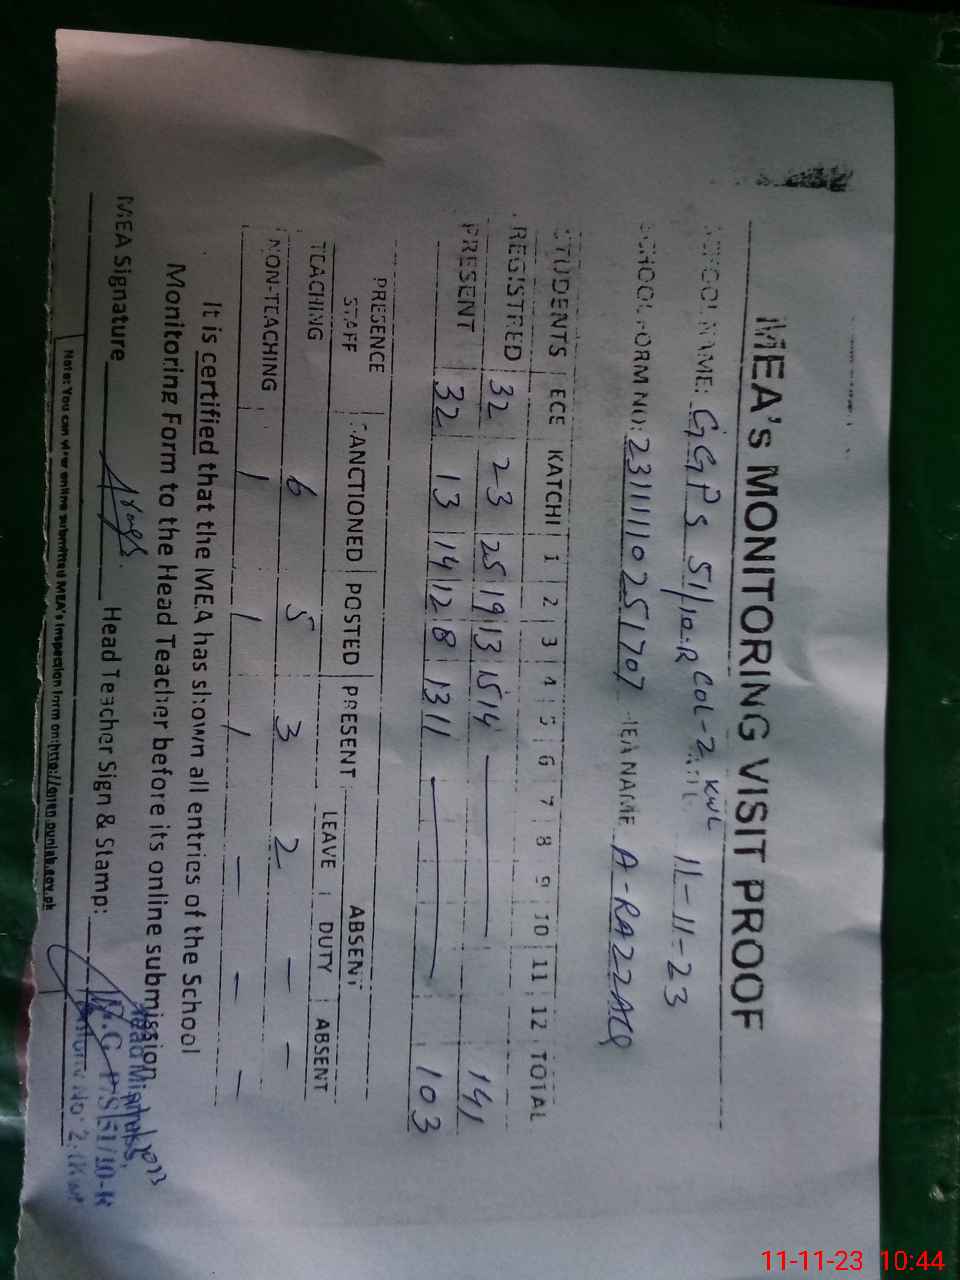 MEA's MONITORING VISIT PROOF
SCHOOL NAME: GGPS 51/10.R COL-2 KWL DATE: 11-11-23
SCHOOL FORM NO: 231111025 1707 MEA NAME A-RAZZAQ
STUDENTS ECE KATCHI 1 2 3 4 5 6 7 8 9 10 11 12 TOTAL
REGISTRED 32 23 25 19 13 15 14 — 141
PRESENT 32 13 14 12 8 13 11 — 103
PRESENCE ABSENT
STAFF SANCTIONED POSTED PRESENT LEAVE DUTY ABSENT
TEACHING 6 5 3 2 — —
NON-TEACHING 1 1 1 — — —
It is certified that the MEA has shown all entries of the School
Monitoring Form to the Head Teacher before its online submission
MEA Signature Head Teacher Sign & Stamp:
Head Mistress,
M.C. P/S 51/10-R
Note: You can view online submitted MEA's Inspection form on:
11-11-23 10:44